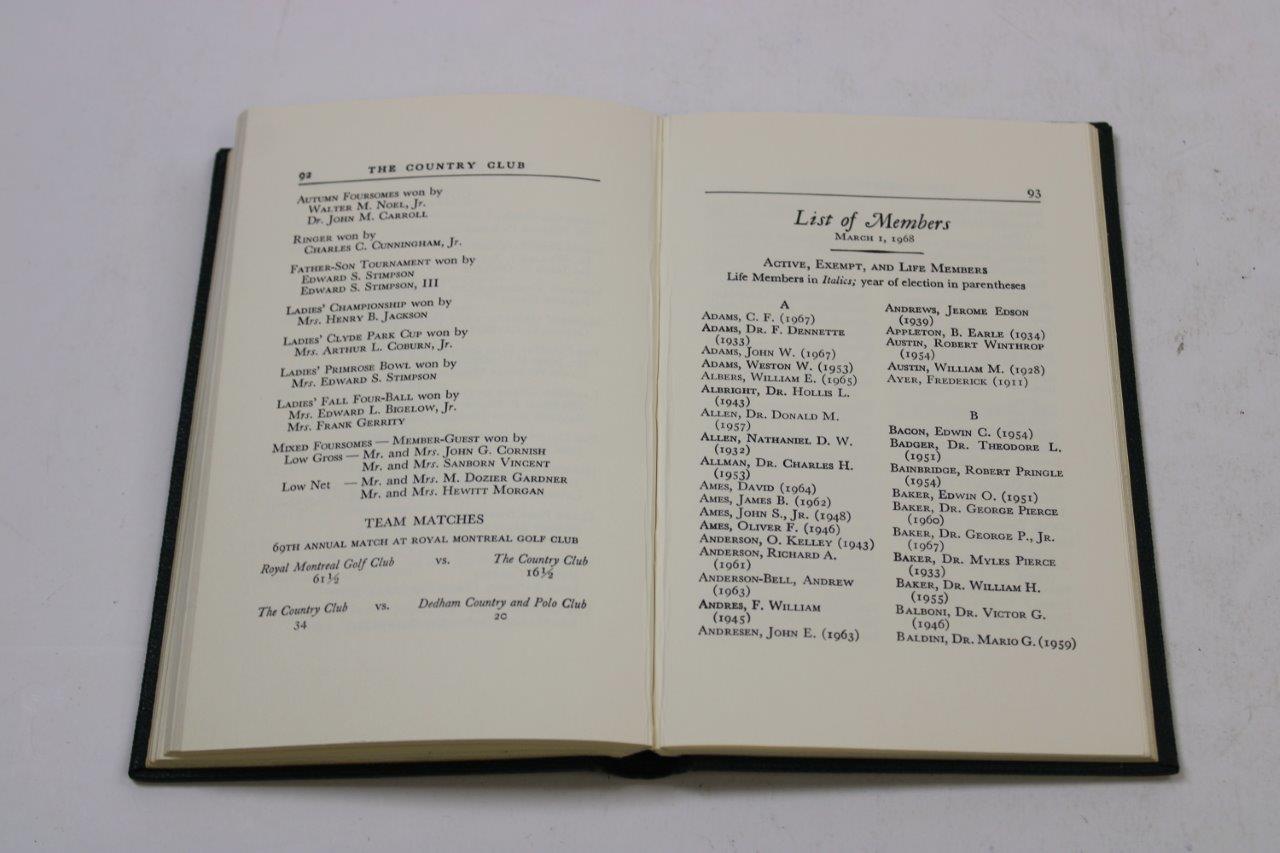 92 THE COUNTRY CLUB
AUTUMN FOURSOMES won by
WALTER M. NOEL, Jr.
Dr. JOHN M. CARROLL
RINGER won by
CHARLES C. CUNNINGHAM, Jr.
FATHER-SON TOURNAMENT won by
EDWARD S. STIMPSON
EDWARD S. STIMPSON, III
LADIES' CHAMPIONSHIP won by
Mrs. HENRY B. JACKSON
LADIES' CLYDE PARK CUP won by
Mrs. ARTHUR L. COBURN, Jr.
LADIES' PRIMROSE BOWL won by
Mrs. EDWARD S. STIMPSON
LADIES' FALL FOUR-BALL won by
Mrs. EDWARD L. BIGELOW, Jr.
Mrs. FRANK GERRITY
MIXED FOURSOMES — MEMBER-GUEST won by
Low Gross — Mr. and Mrs. JOHN G. CORNISH
Mr. and Mrs. SANBORN VINCENT
Low Net — Mr. and Mrs. M. DOZIER GARDNER
Mr. and Mrs. HEWITT MORGAN
TEAM MATCHES
69TH ANNUAL MATCH AT ROYAL MONTREAL GOLF CLUB
Royal Montreal Golf Club vs. The Country Club
61½ 16½
The Country Club vs. Dedham Country and Polo Club
34 20
93
List of Members
MARCH 1, 1968
ACTIVE, EXEMPT, AND LIFE MEMBERS
Life Members in Italics; year of election in parentheses
A
ADAMS, C. F. (1967)
ADAMS, DR. F. DENNETTE
(1933)
ADAMS, JOHN W. (1967)
ADAMS, WESTON W. (1953)
ALBERS, WILLIAM E. (1965)
ALBRIGHT, DR. HOLLIS L.
(1943)
ALLEN, DR. DONALD M.
(1957)
ALLEN, NATHANIEL D. W.
(1932)
ALLMAN, DR. CHARLES H.
(1953)
AMES, DAVID (1964)
AMES, JAMES B. (1962)
AMES, JOHN S., JR. (1948)
AMES, OLIVER F. (1946)
ANDERSON, O. KELLEY (1943)
ANDERSON, RICHARD A.
(1961)
ANDERSON-BELL, ANDREW
(1963)
ANDRES, F. WILLIAM
(1945)
ANDRESEN, JOHN E. (1963)
ANDREWS, JEROME EDSON
(1939)
APPLETON, B. EARLE (1934)
AUSTIN, ROBERT WINTHROP
(1954)
AUSTIN, WILLIAM M. (1928)
AYER, FREDERICK (1911)
B
BACON, EDWIN C. (1954)
BADGER, DR. THEODORE L.
(1951)
BAINBRIDGE, ROBERT PRINGLE
(1954)
BAKER, EDWIN O. (1951)
BAKER, DR. GEORGE PIERCE
(1960)
BAKER, DR. GEORGE P., JR.
(1967)
BAKER, DR. MYLES PIERCE
(1933)
BAKER, DR. WILLIAM H.
(1955)
BALBONI, DR. VICTOR G.
(1946)
BALDINI, DR. MARIO G. (1959)